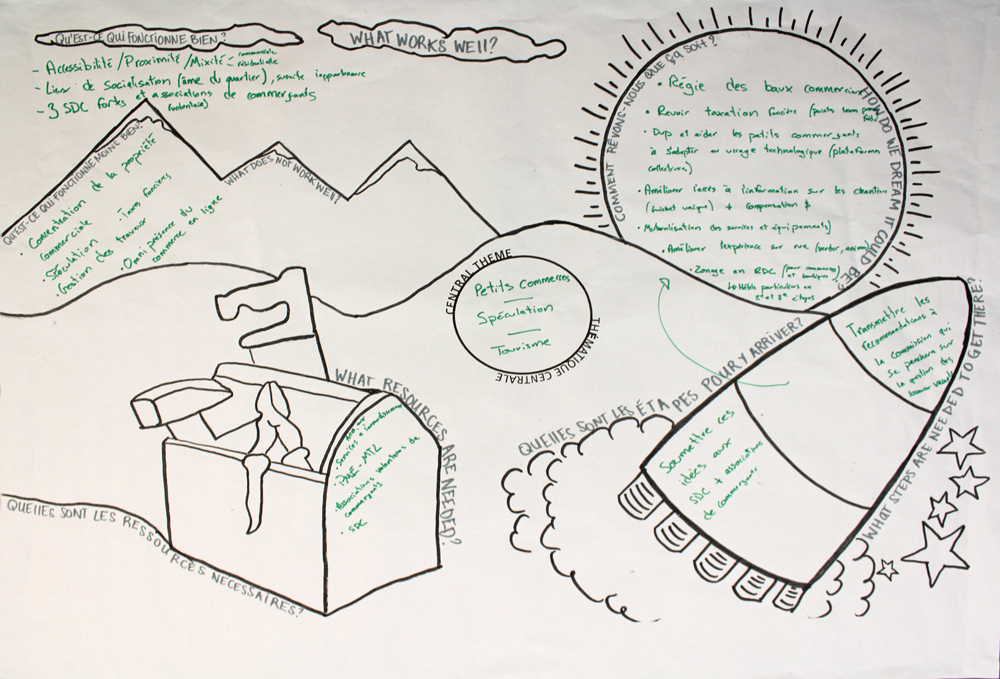 QU'EST-CE QUI FONCTIONNE BIEN?
- Accessibilité / Proximité / Mixité - commerciale
résidentielle
- Lieux de socialisation (âme du quartier),
- 3 SDC fortes et associations de commerçants
(volontaire)
WHAT WORKS WELL?
QU'EST-CE QUI FONCTIONNE MOINS BIEN?
• Concentration de la propriété
commerciale
• Spéculation - taxes foncières
• Gestion des travaux
• Omni présence du
commerce en ligne
WHAT DOES NOT WORK WELL?
COMMENT RÊVONS-NOUS QUE ÇA SOIT?
HOW DO WE DREAM IT COULD BE?
• Régie des baux commerciaux
• Revoir taxation foncière
• Dvp et aider les petits commerçants
à s'adapter au virage technologique (plateforme
collective)
• Améliorer l'accès à l'information sur les chantiers
(guichet unique) + compensation $
• Mutualisation des services et équipements)
• Améliorer l'expérience sur rue
• Zonage en RDC
CENTRAL THEME
Petits Commerces
Spéculation
Tourisme
THÉMATIQUE CENTRALE
WHAT RESOURCES ARE NEEDED?
• Services d'arrondissement
• PME-MTL
• Associations volontaires de
commerçants
• SDC
QUELLES SONT LES RESSOURCES NECESSAIRES?
QUELLES SONT LES ÉTAPES POUR Y ARRIVER?
WHAT STEPS ARE NEEDED TO GET THERE?
Transmettre les
recommandations à
la commission qui
se penchera sur
la question des
locaux vacants
Soumettre ces
idées aux
SDC + associations
de commerçants